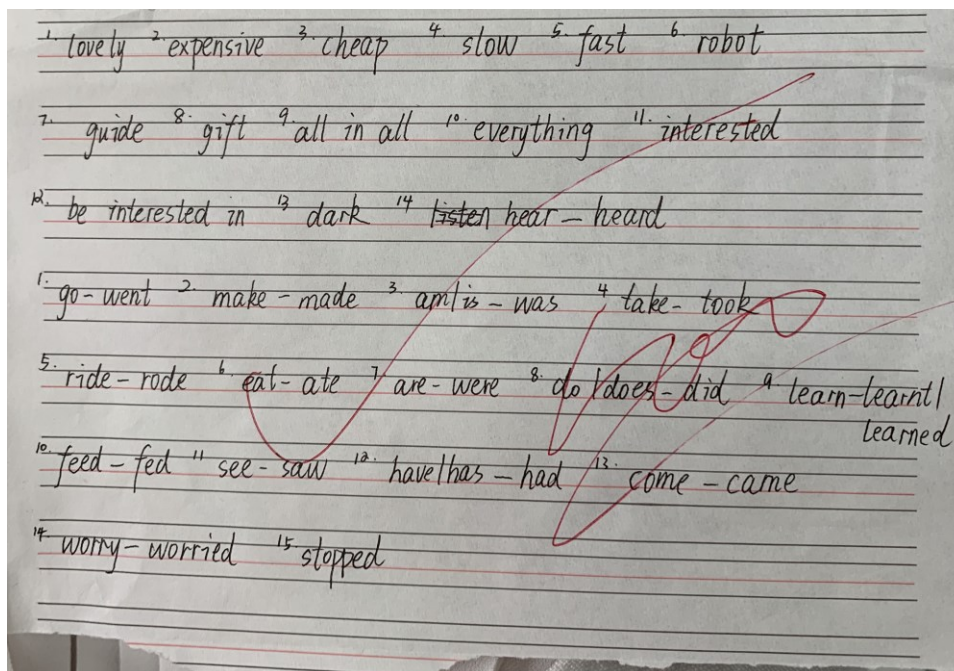 1. lovely 2. expensive 3. cheap 4. slow 5. fast 6. robot
7. guide 8. gift 9. all in all 10. everything 11. interested
12. be interested in 13 dark 14 listen hear – heard
1. go – went 2. make – made 3. am/is – was 4 take – took
5. ride – rode 6. eat – ate 7 are – were 8. do/does – did 9 learn – learnt/
learned
10. feed – fed 11 see – saw 12. have/has – had 13. come – came
14 worry – worried 15 stopped